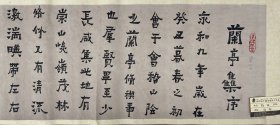 蘭亭集序
永和九年歲在
癸丑暮春之初
會于會稽山陰
之蘭亭脩禊事
也羣賢畢至少
長咸集此地有
崇山峻嶺茂林
脩竹又有清流
激湍暎帶左右